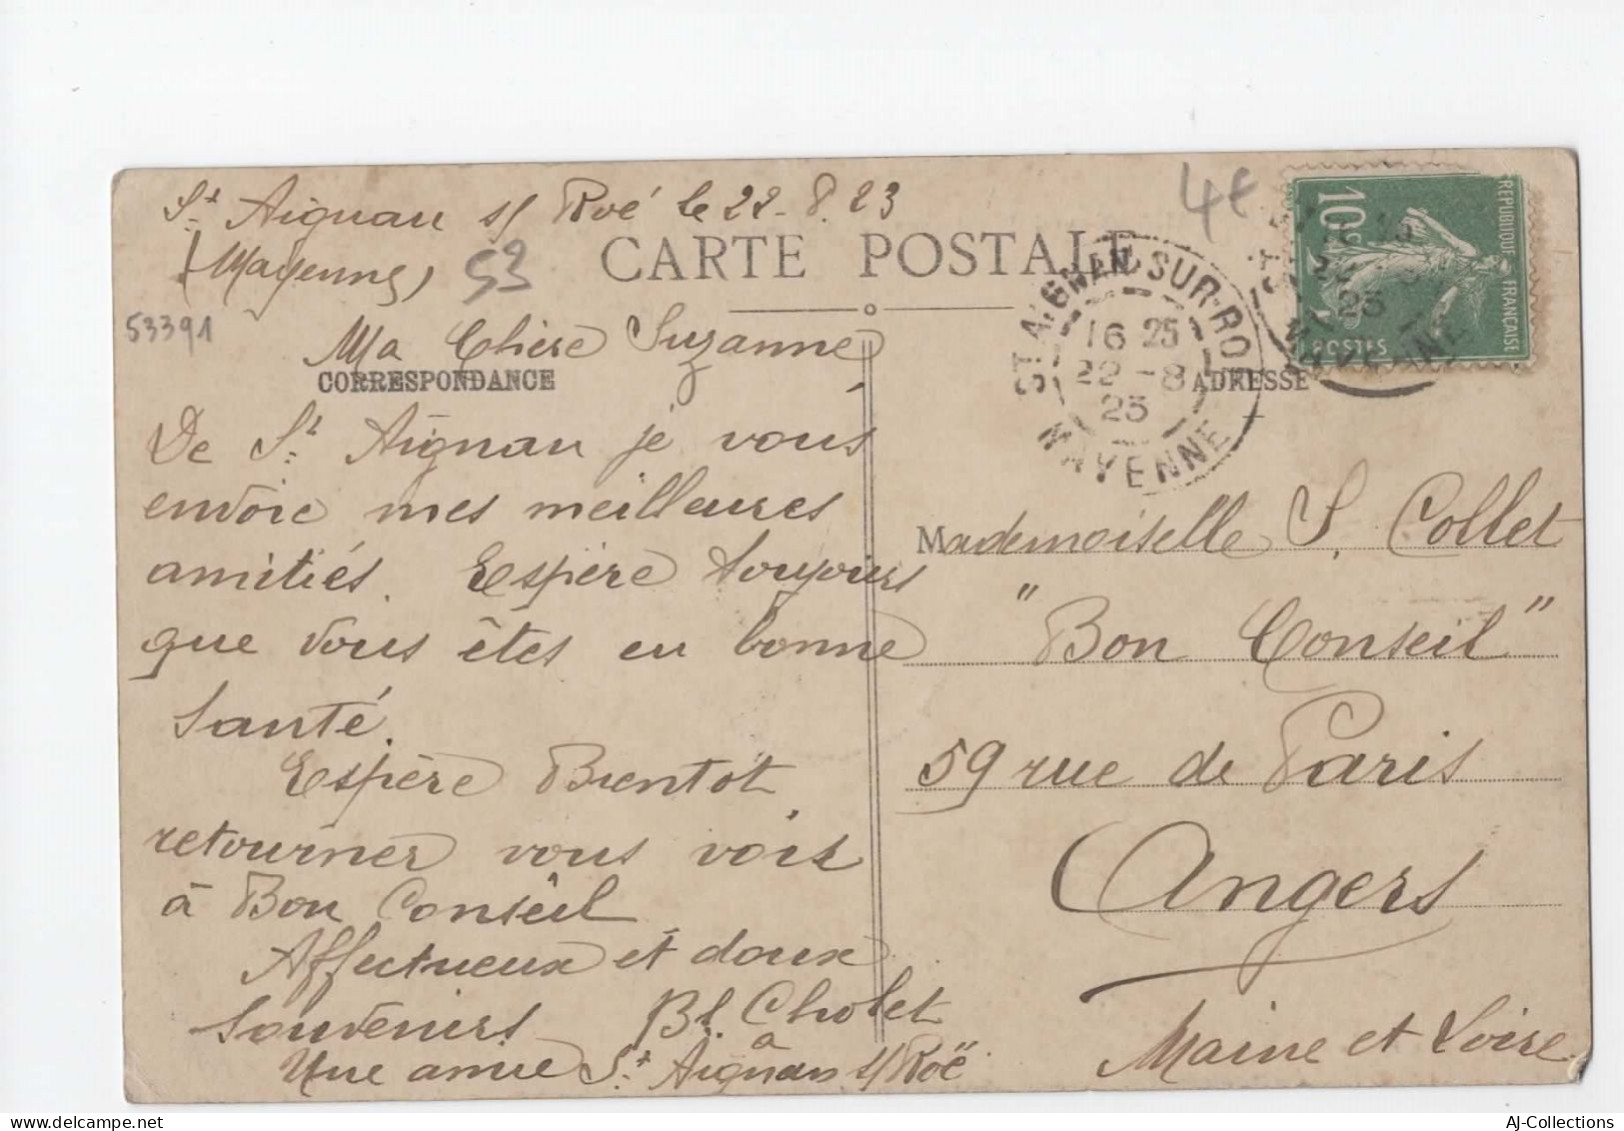 St Aignan s/ Roé le 22-8.23
(Mayenne)
53
53391
4€
CARTE POSTALE
CORRESPONDANCE
ADRESSE
Ma Chère Suzanne
De St Aignan je vous
envoie mes meilleures
amitiés. Espère toujours
que vous êtes en bonne
Santé.
Espère Bientôt
retourner vous voir
à Bon Conseil
Affectueux et doux
Souvenirs
Une amie
Bl. Cholet
à
St Aignan s/ Roë
ST AIGNAN-SUR-ROË
16 25
22 -8
23
MAYENNE
REPUBLIQUE FRANÇAISE
10c
POSTES
MAYENNE
Mademoiselle S. Collet
"Bon Conseil"
59 rue de Paris
Angers
Maine et Loire
AJ-Collections